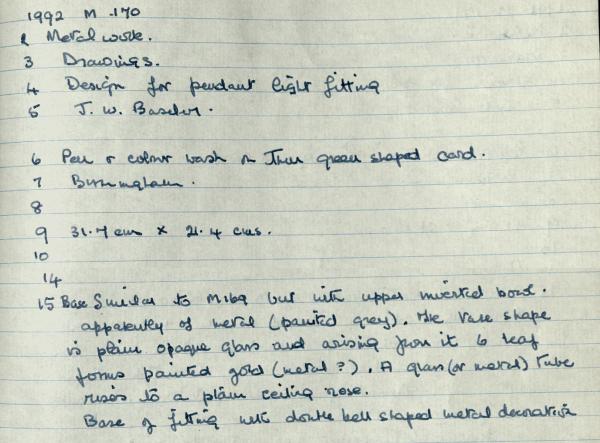 1992 M .170
2 Metalwork.
3 Drawings.
4 Design for pendant light fitting
5 J. W.
6 Pen & colour wash on thin green shaped card.
7 Birmingham.
8
9 31.7 cm x 21.4 cms.
10
14
15 Base Similar to M169 but with upper inverted bowl.
apparently of metal (painted grey). The vase shape
is plain opaque glass and arising from it 6 leaf
forms painted gold (metal?). A glass (or metal) tube
rises to a plain ceiling rose.
Base of fitting with double bell shaped metal decoration